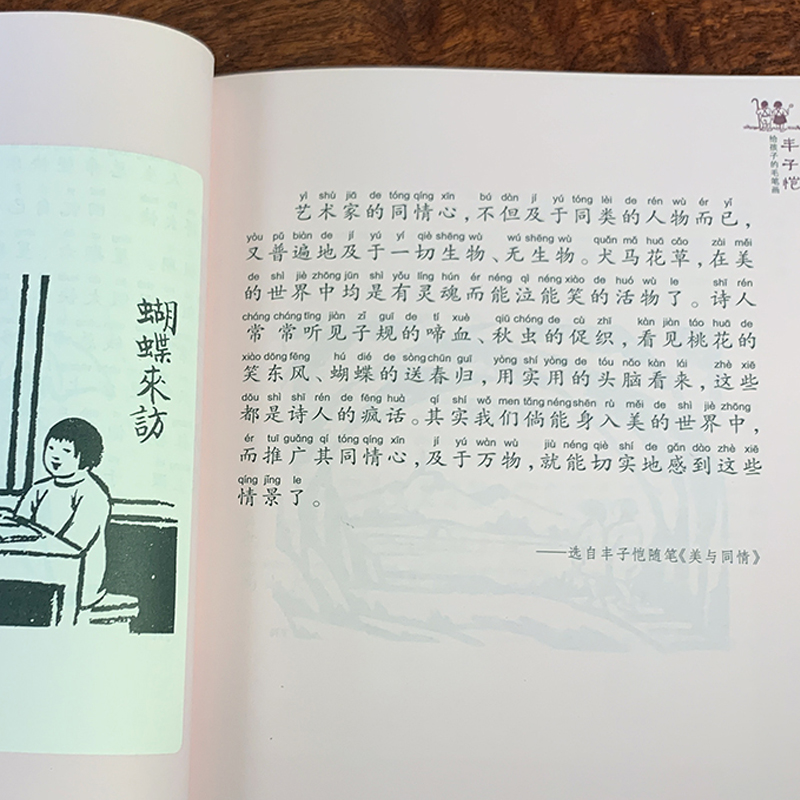 蝴蝶來訪
丰子恺
给孩子的毛笔画
yì shù jiā de tóng qíng xīn bú dàn jí yú tóng lèi de rén wù ér yǐ
艺术家的同情心,不但及于同类的人物而已,
yòu pǔ biàn de jí yú yí qiè shēng wù wú shēng wù quǎn mǎ huā cǎo zài měi
又普遍地及于一切生物、无生物。犬马花草,在美
de shì jiè zhōng jūn shì yǒu líng hún ér néng qì néng xiào de huó wù le shī rén
的世界中均是有灵魂而能泣能笑的活物了。诗人
cháng cháng tīng jiàn zǐ guī de tí xuè qiū chóng de cù zhī kàn jiàn táo huā de
常常听见子规的啼血、秋虫的促织,看见桃花的
xiào dōng fēng hú dié de sòng chūn guī yòng shí yòng de tóu nǎo kàn lái zhè xiē
笑东风、蝴蝶的送春归,用实用的头脑看来,这些
dōu shì shī rén de fēng huà qí shí wǒ men tǎng néng shēn rù měi de shì jiè zhōng
都是诗人的疯话。其实我们倘能身入美的世界中,
ér tuī guǎng qí tóng qíng xīn jí yú wàn wù jiù néng qiè shí de gǎn dào zhè xiē
而推广其同情心,及于万物,就能切实地感到这些
qíng jǐng le
情景了。
——选自丰子恺随笔《美与同情》